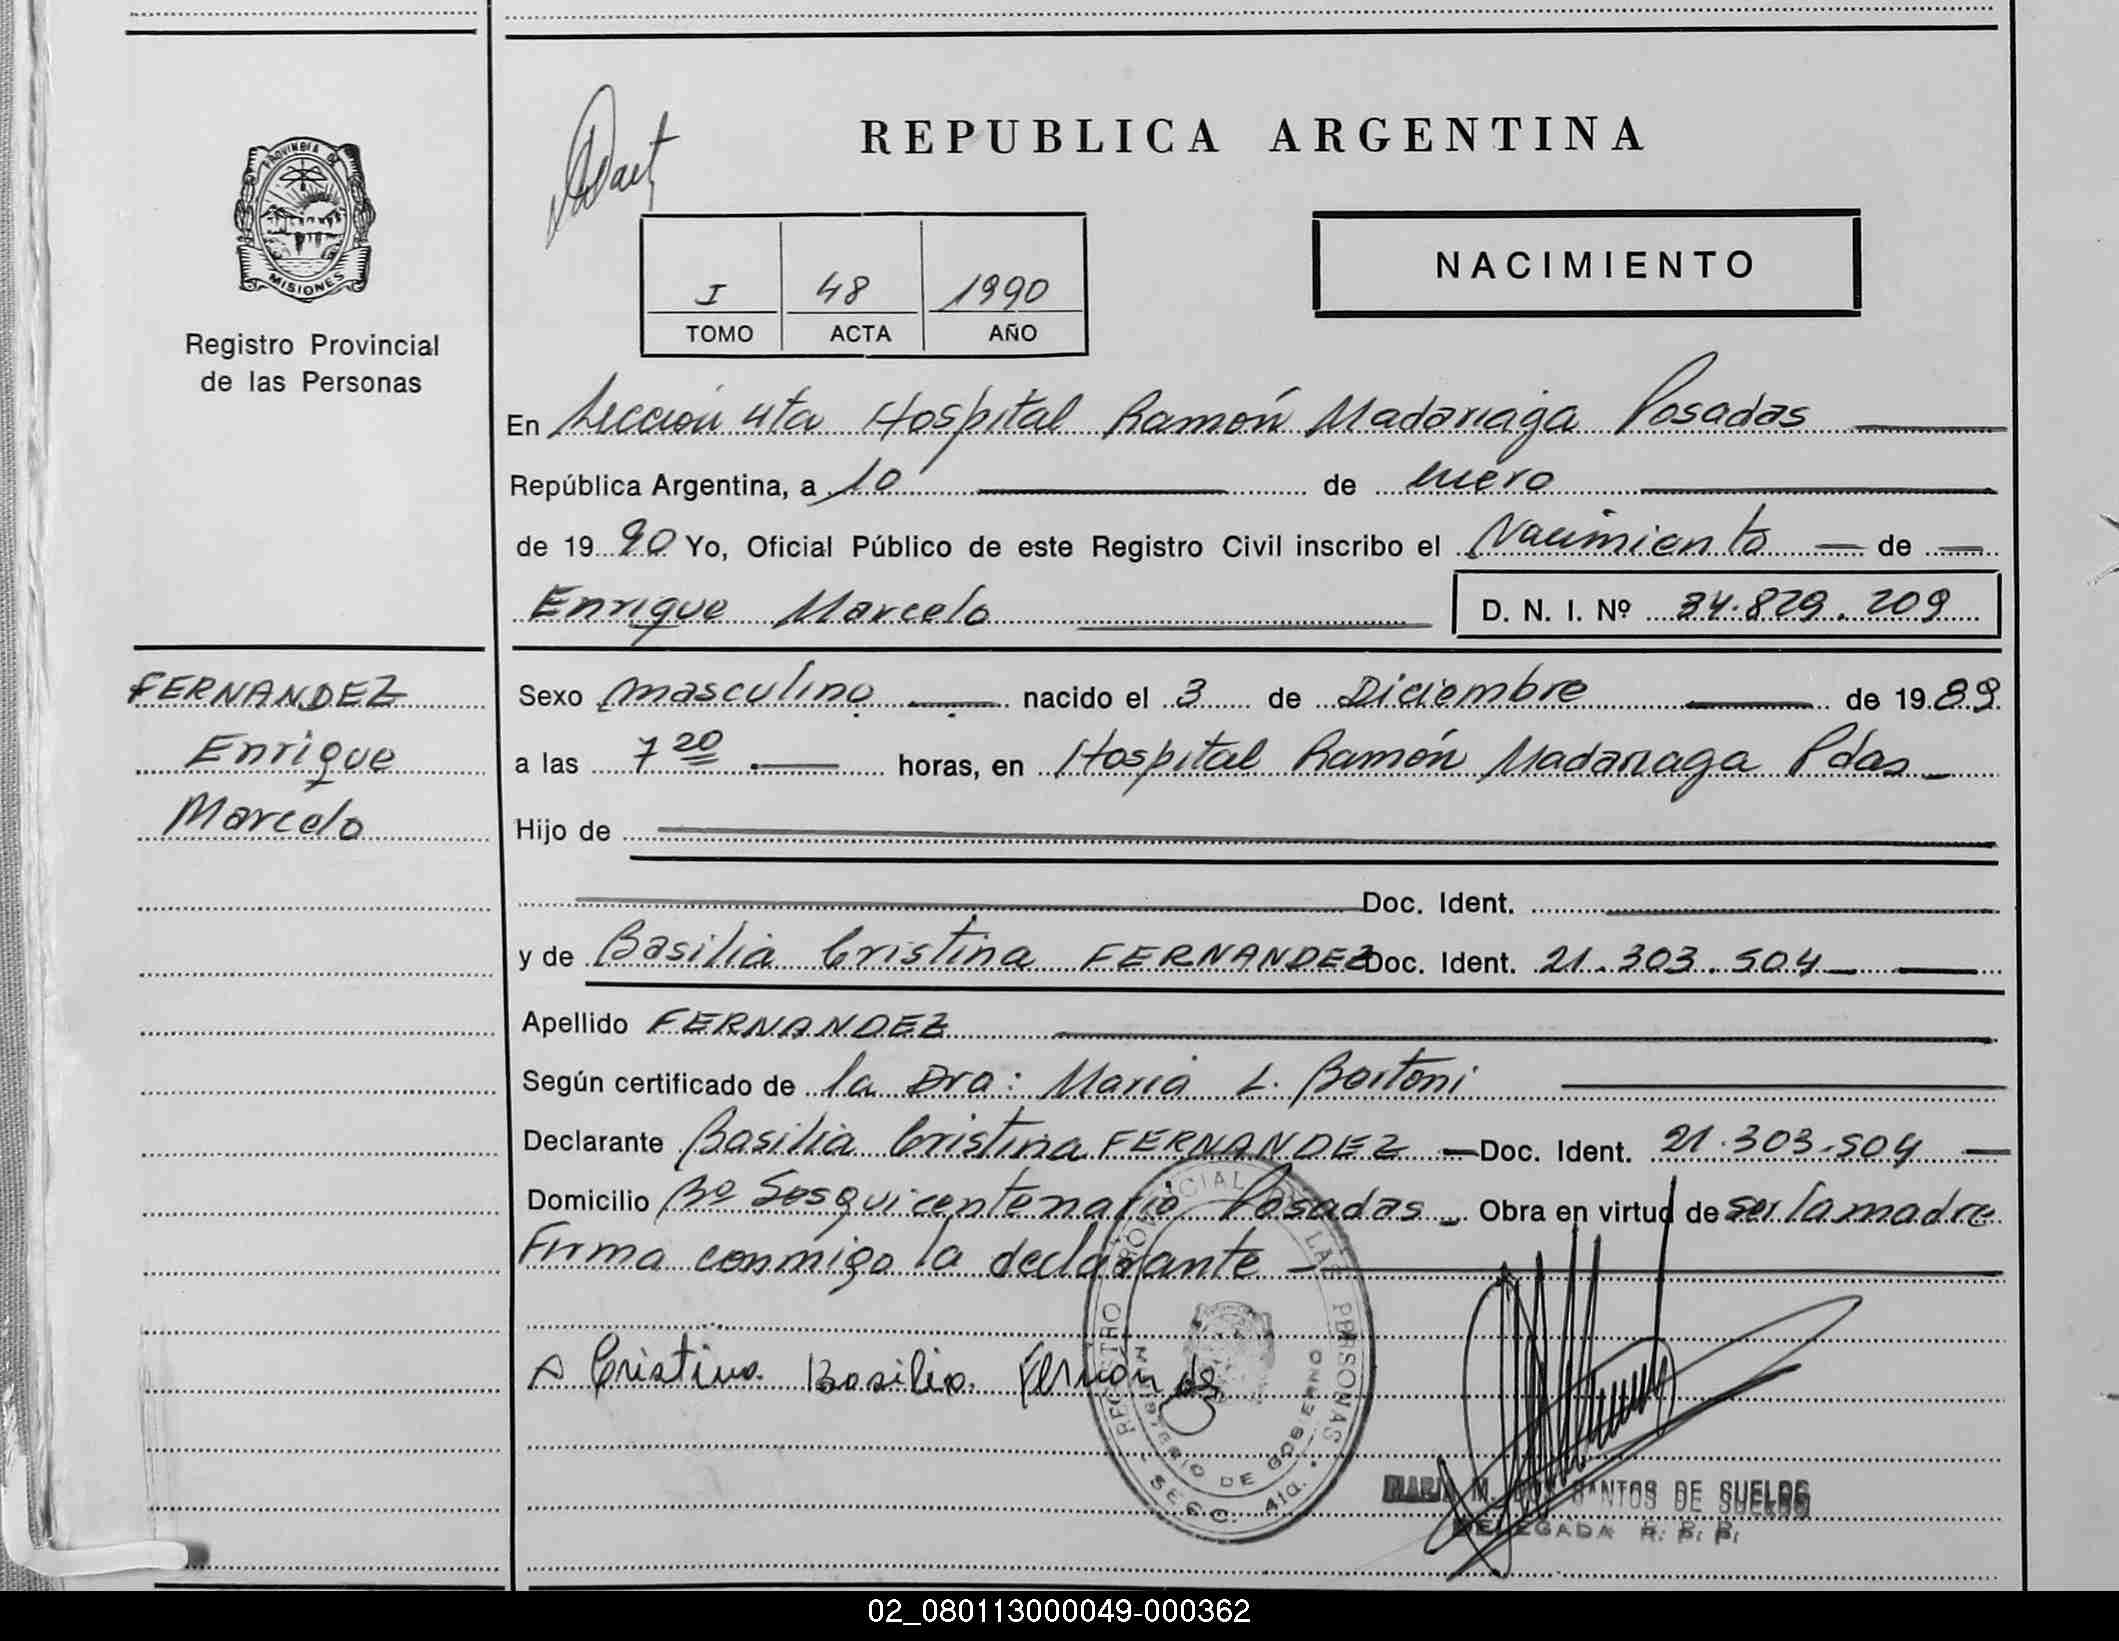 REPUBLICA ARGENTINA
PROVINCIA DE
MISIONES
Registro Provincial
de las Personas
I 48 1990
TOMO ACTA AÑO
NACIMIENTO
En Sección 4ta Hospital Ramón Madariaga Posadas
República Argentina, a 10 de enero
de 1990 Yo, Oficial Público de este Registro Civil inscribo el Nacimiento de
Enrique Marcelo D. N. I. Nº 34.829.209
FERNANDEZ
Enrique
Marcelo
Sexo masculino nacido el 3 de Diciembre de 1989
a las 7 20 horas, en Hospital Ramón Madariaga Pdas
Hijo de
Doc. Ident.
y de Basilia Cristina FERNANDEZ Doc. Ident. 21.303.504
Apellido FERNANDEZ
Según certificado de la Dra: Maria L. Bortoni
Declarante Basilia Cristina FERNANDEZ Doc. Ident. 21.303.504
Domicilio Bº Sesquicentenario Posadas Obra en virtud de ser la madre
Firma conmigo la declarante
Cristina Basilia Fernández
REGISTRO PROVINCIAL DE LAS PERSONAS
MINISTERIO DE GOBIERNO
SECC. 4ta.
M. SANTOS DE SUELDO
DELEGADA R. P. P.
02_080113000049-000362